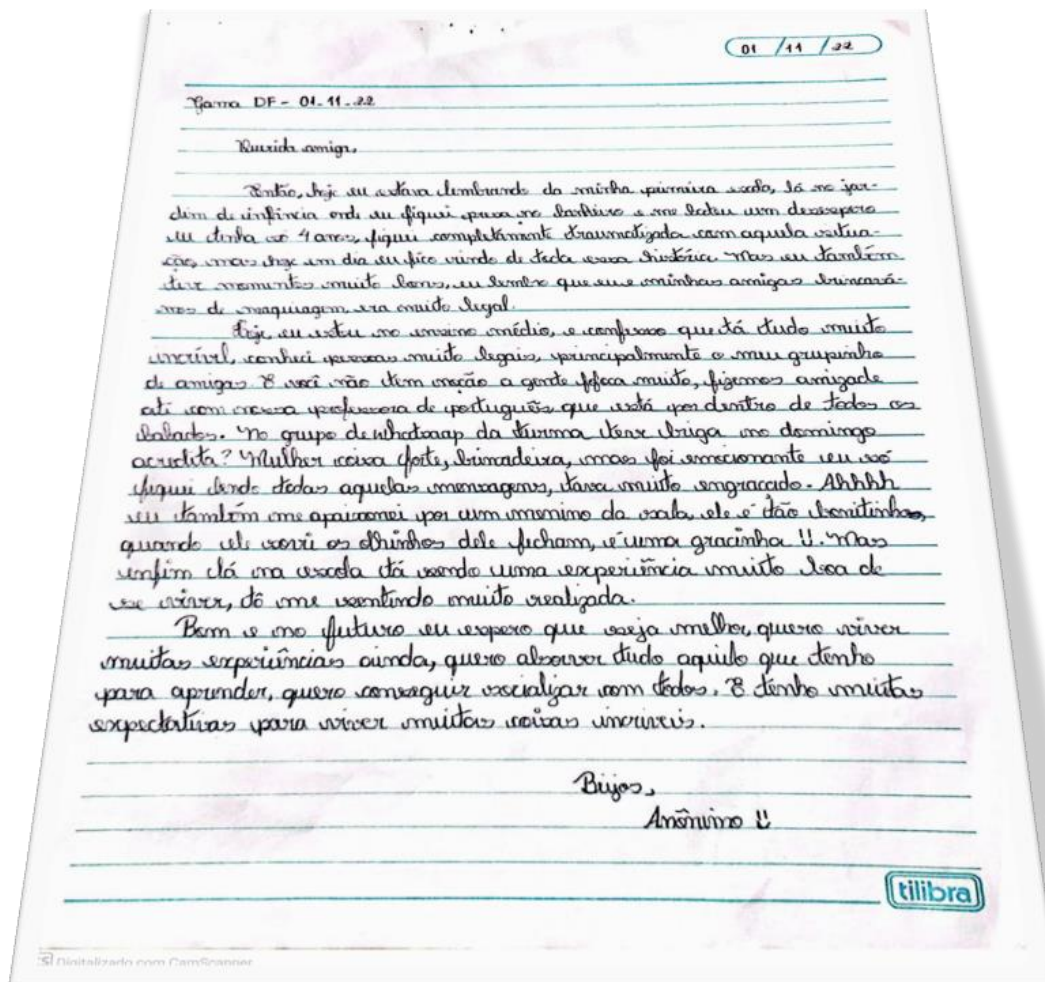 01 / 11 / 22
Gama DF - 01-11-22
Querida amiga,
Então, hoje eu estava lembrando da minha primeira escola, lá no jar-
dim de infância onde eu fiquei presa no banheiro e me bateu um desespero
eu tinha só 4 anos, fiquei completamente traumatizada com aquela situa-
ção, mas hoje em dia eu fico rindo de toda essa história. Mas eu também
tive momentos muito bons, eu lembro que eu e minhas amigas brincavá-
mos de maquiagem, era muito legal.
Hoje, eu estou no ensino médio, e confesso que tá tudo muito
incrível, conheci pessoas muito legais, principalmente o meu grupinho
de amigas. E você não tem noção a gente fofoca muito, fizemos amizade
até com nossa professora de português que está por dentro de todos os
babados. No grupo de whatsaap da turma teve briga no domingo
acredita? Mulher coisa forte, brincadeira, mas foi emocionante eu só
fiquei lendo todas aquelas mensagens, tava muito engraçado. Ahhhh
eu também me apaixonei por um menino da sala, ele é tão bonitinho,
quando ele sorri os olhinhos dele fecham, é uma gracinha !!. Mas
enfim lá na escola tá sendo uma experiência muito boa de
se viver, tô me sentindo muito realizada.
Bom e no futuro eu espero que seja melhor, quero viver
muitas experiências ainda, quero absorver tudo aquilo que tenho
para aprender, quero conseguir socializar com todos. E tenho muitas
expectativas para viver muitas coisas incríveis.
Beijos,
Anônimo !!
tilibra
Digitalizado com CamScanner